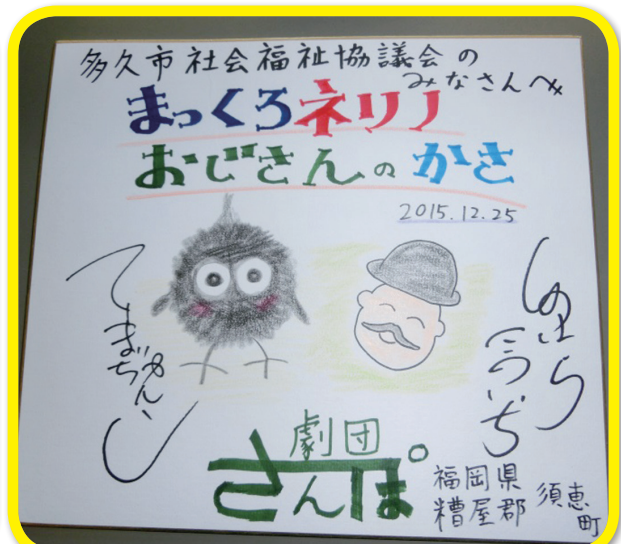 多久市社会福祉協議会の
みなさんへ
まっくろネリノ
おじさんのかさ
2015.12.25
劇団
さんぽ
福岡県
糟屋郡
須恵町